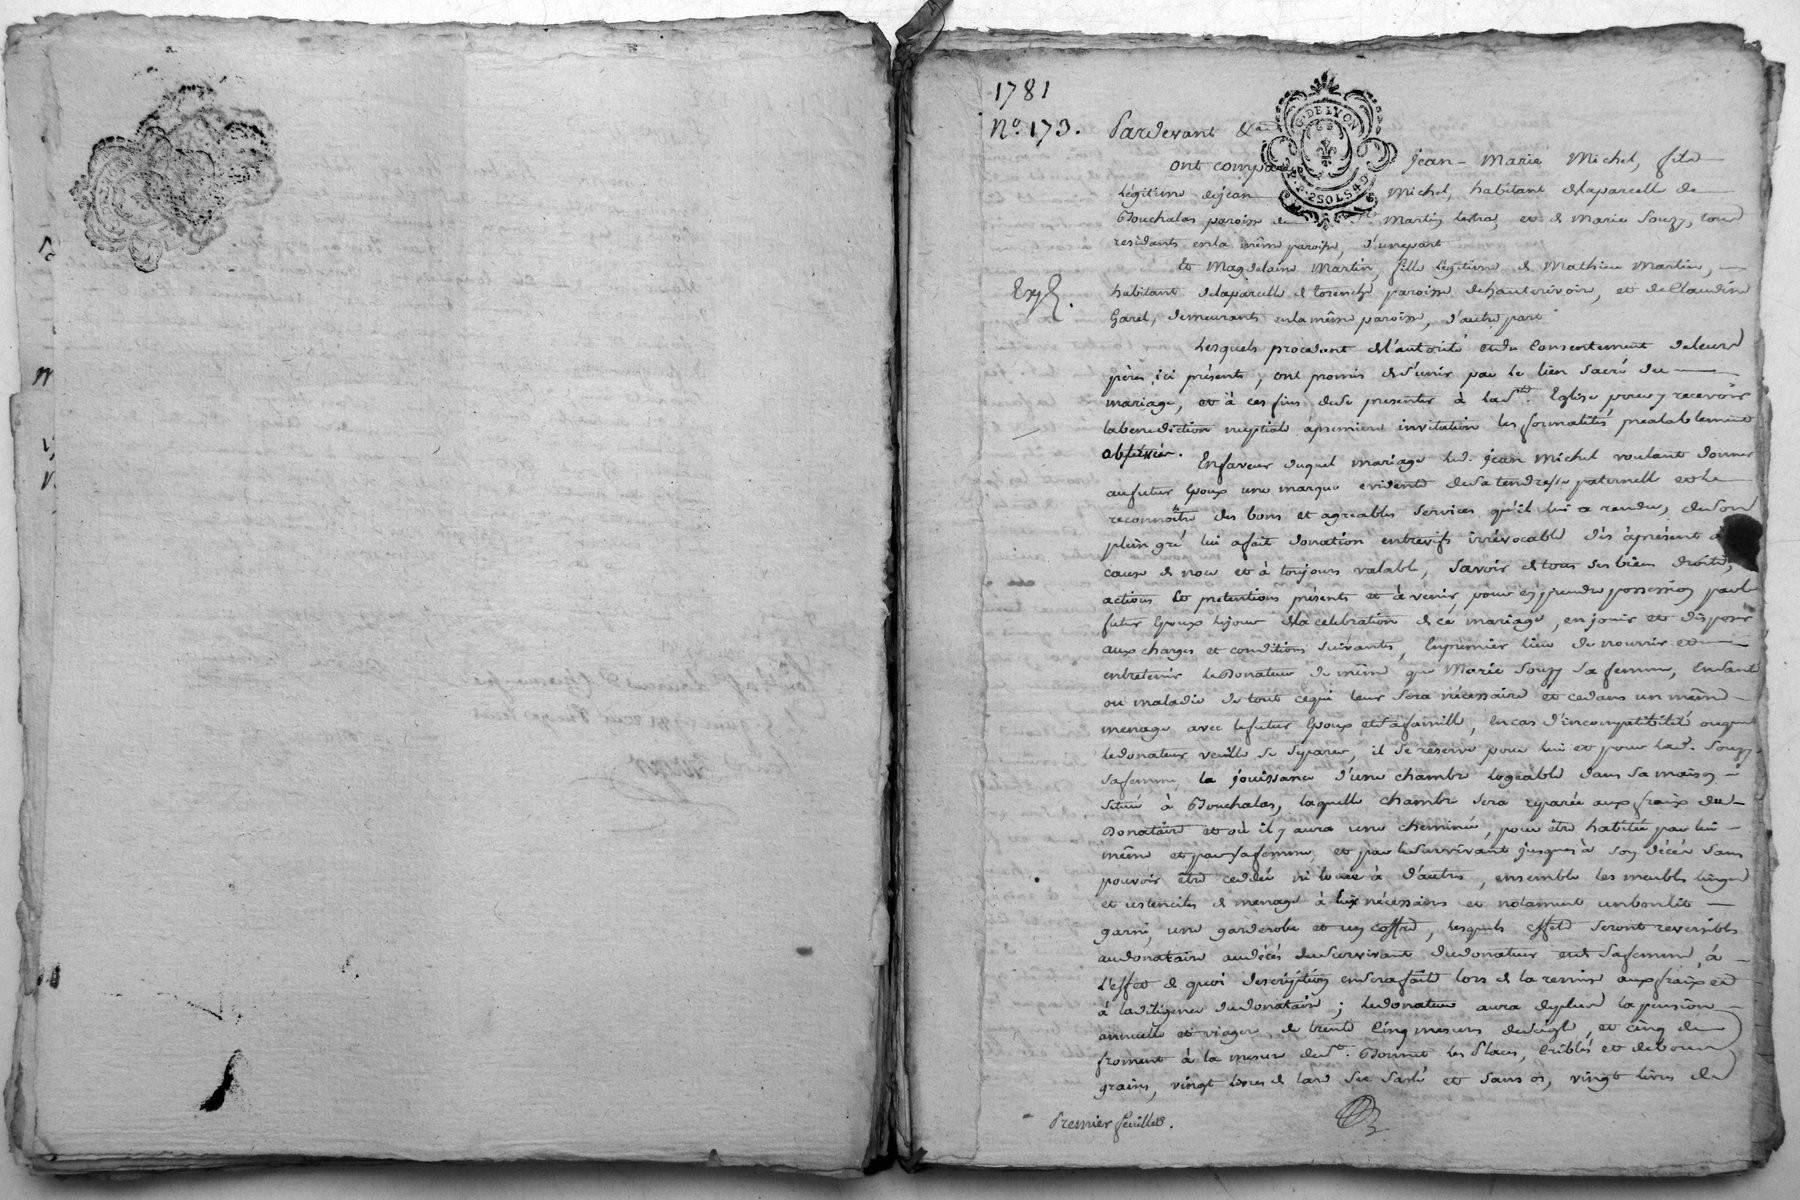 1781
No. 173.
G. DE LYON
2 SOLS 4 D
Pardevant &a
ont comparu Jean-Marie Michel, fils
légitime de jean Michel, habitant dela parcelle de
Bouchalas paroisse de St Martin lestra, et de Marie Souzy, tous
residants en la même paroisse, d'une part
Et Magdelaine Martin, fille légitime de Mathieu Martin,
habitant dela parcelle de torenche paroisse de hauterivoire, et de Claudine
Garel, demeurants en la même paroisse, d'autre part
Exp.
Lesquels procedant de l'autorité et du Consentement de leurs
pères, ici présents, ont promis de s'unir par le lien Sacré du
mariage, et à ces fins de se presenter à la Ste. Eglise pour y recevoir
la benediction nuptiale a premiere invitation les formalités prealablement
observées. En faveur duquel mariage led. jean Michel voulant donner
au futur Epoux une marque evidente de sa tendresse paternelle et le
reconnoître des bons et agreables services qu'il lui a rendu, de son
plein gré lui a fait donation entrevifs irrévocable dès àprésent à
cause de noce et à toujours valable, Savoir de tous ses biens droits,
actions Et pretentions présents et à venir, pour en prendre possession par le
futur Epoux le jour de la celebration de ce mariage, en jouir et disposer
aux charges et conditions suivantes, En premier lieu de nourrir et
entretenir le Donateur de même que Marie Souzy sa femme, En santé
ou maladie de tout ce qui leur sera nécessaire et ce dans un même
menage avec le futur Epoux et sa famille, En cas d'incompatibilité ou que
le donateur veuille se separer, il se reserve pour lui et pour lad. Souzy
sa femme, la jouissance d'une chambre logeable dans sa maison
située à Bouchalas, laquelle chambre sera reparée aux fraix du
Donataire et où il y aura une cheminée, pour être habitée par lui
même et par sa femme, et par le survivant jusques à son décés sans
pouvoir être ceddée ni louée à d'autres, ensemble les meubles linges
et ustenciles de menage à eux nécessaires et notament un bon lit
garni, une garderobe et un coffre, lesquels effets seront reversibles
au donataire au décés du survivant du donateur et de sa femme, à
l'effet de quoi description en sera faite lors de la remise aux fraix et
à la diligence du donataire; le donateur aura de plus la pension
annuelle et viagere de trente Cinq mesures de seigle, et cinq de
froment à la mesure de St. Bonnet les Places, criblés et de bons
grains, vingt livres de lard sec salé et sans os, vingt livres de
Premier feuillet.